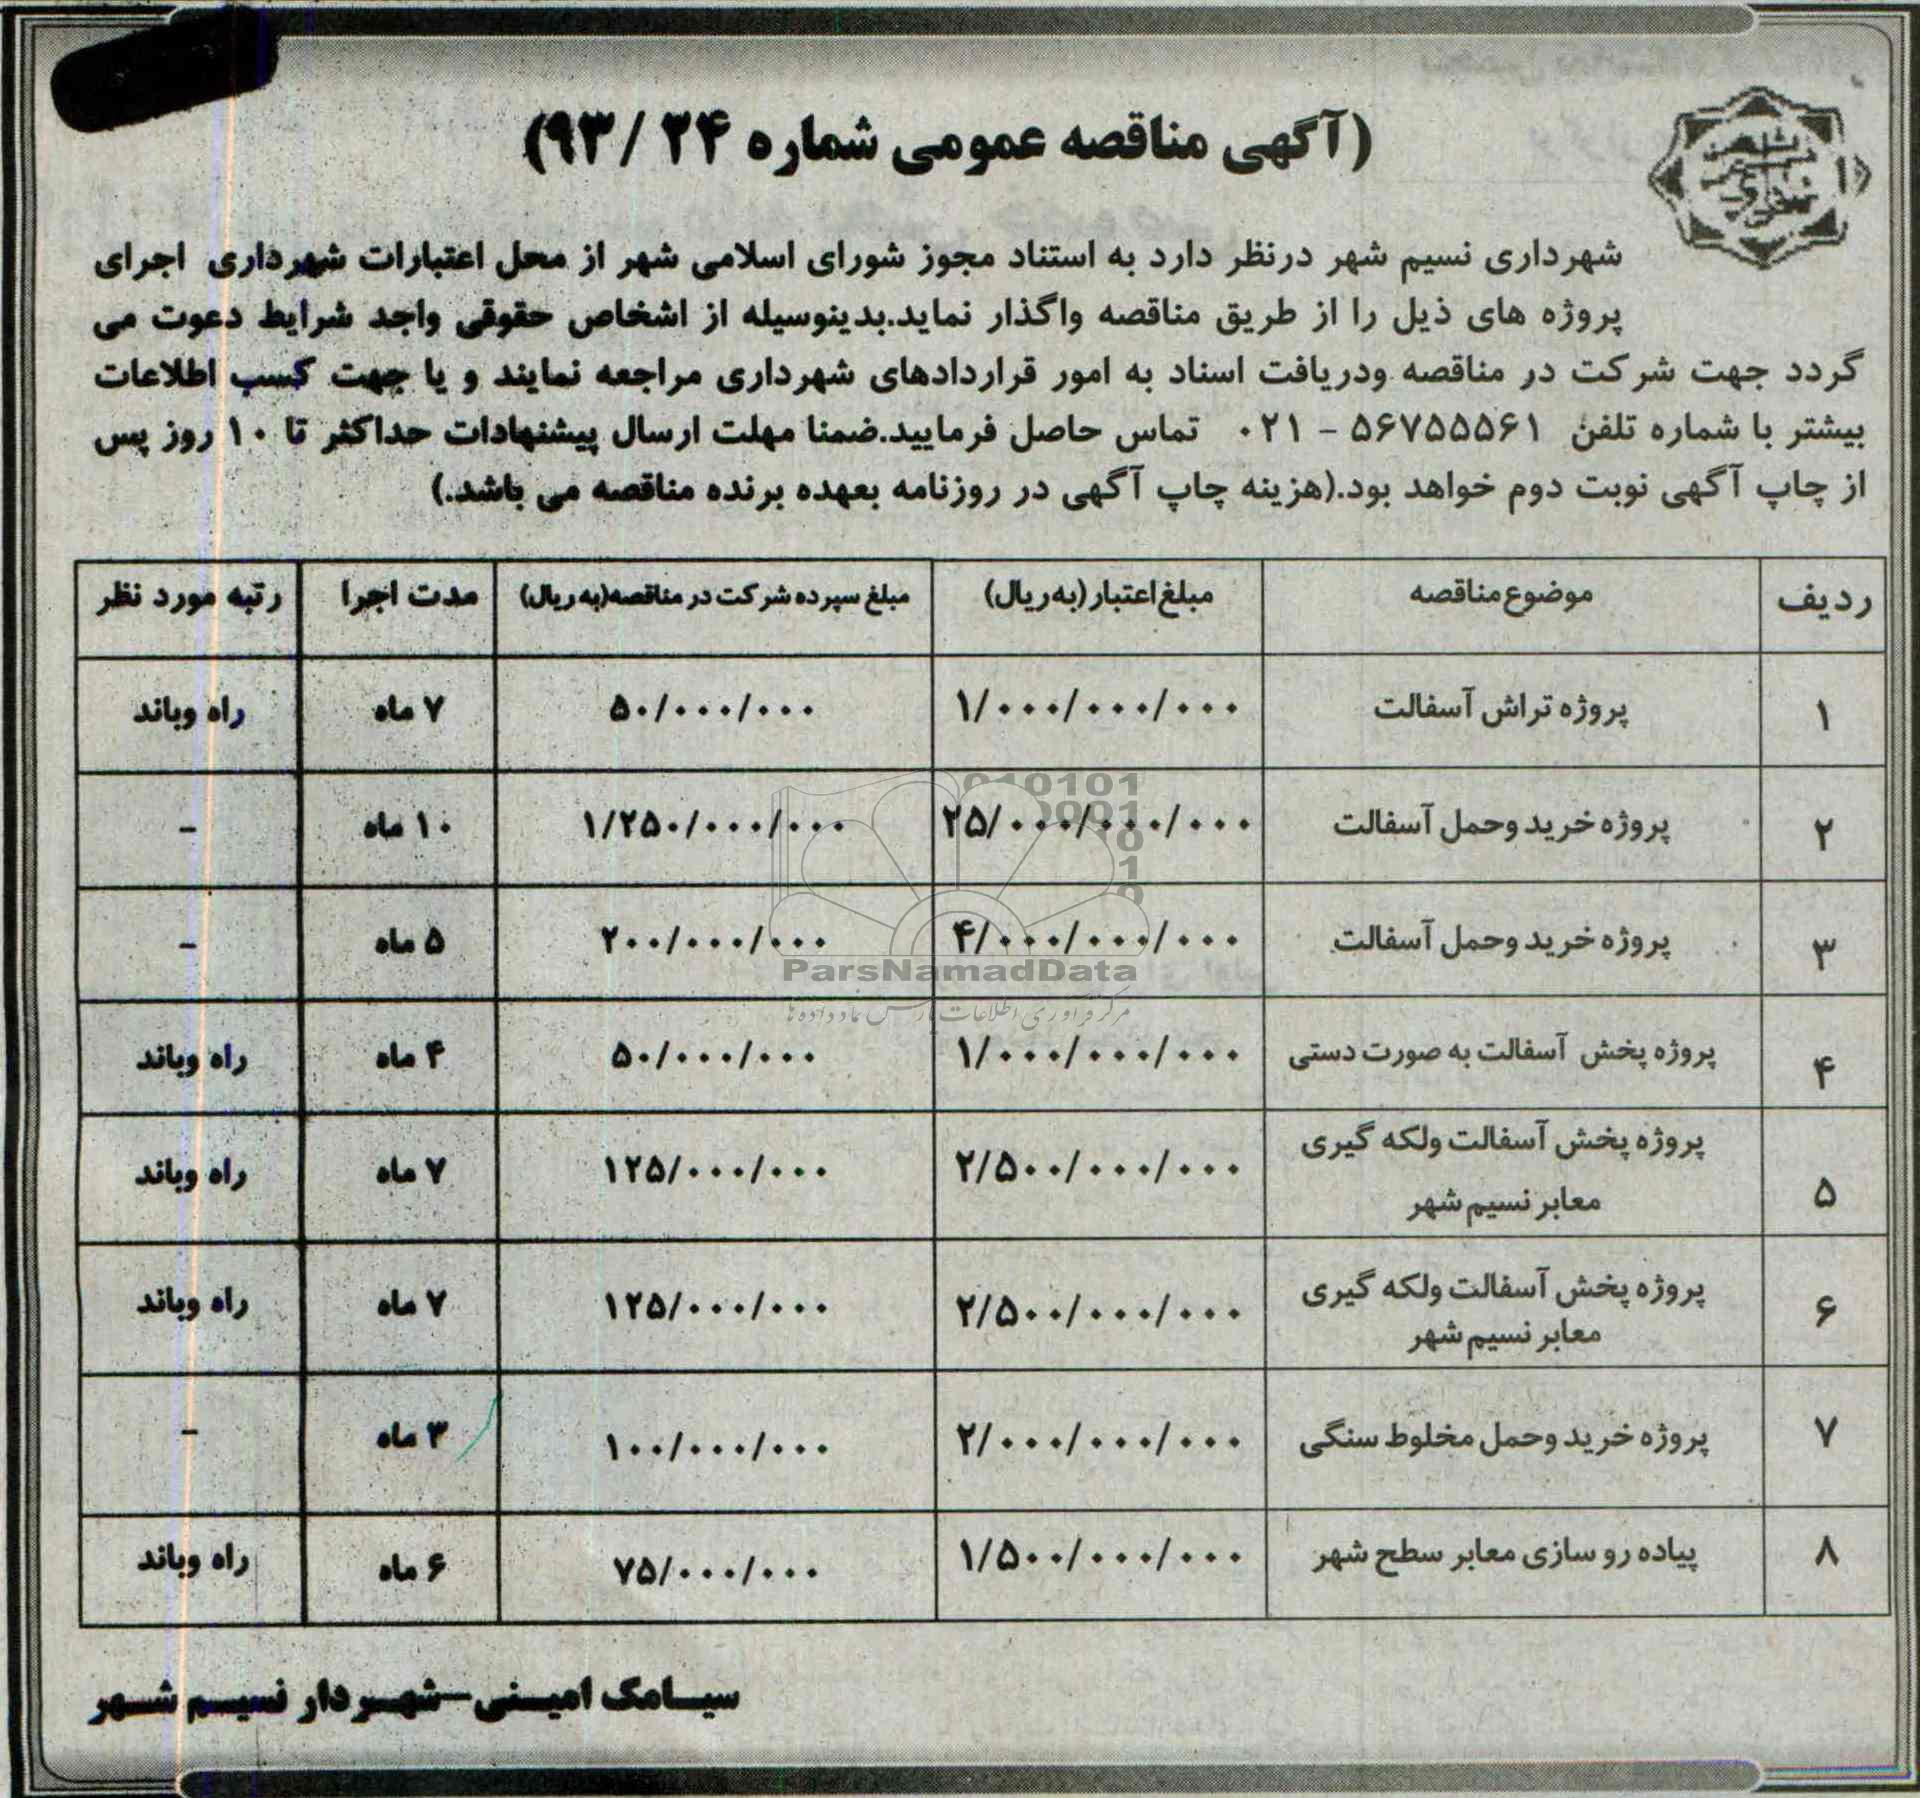 (آگهی مناقصه عمومی شماره ۲۴ /۹۳)
شهرداری نسیم شهر درنظر دارد به استناد مجوز شورای اسلامی شهر از محل اعتبارات شهرداری اجرای
پروژه های ذیل را از طریق مناقصه واگذار نماید.بدینوسیله از اشخاص حقوقی واجد شرایط دعوت می
گردد جهت شرکت در مناقصه ودریافت اسناد به امور قراردادهای شهرداری مراجعه نمایند و یا جهت کسب اطلاعات
بیشتر با شماره تلفن ۵۶۷۵۵۵۶۱ – ۰۲۱ تماس حاصل فرمایید.ضمنا مهلت ارسال پیشنهادات حداکثر تا ۱۰ روز پس
از چاپ آگهی نوبت دوم خواهد بود.(هزینه چاپ آگهی در روزنامه بعهده برنده مناقصه می باشد.)
ردیف موضوع مناقصه مبلغ اعتبار (به ریال) مبلغ سپرده شرکت در مناقصه(به ریال) مدت اجرا رتبه مورد نظر
۱ پروژه تراش آسفالت ۱/۰۰۰/۰۰۰/۰۰۰ ۵۰/۰۰۰/۰۰۰ ۷ ماه راه وباند
۲ پروژه خرید وحمل آسفالت ۲۵/۰۰۰/۰۰۰/۰۰۰ ۱/۲۵۰/۰۰۰/۰۰۰ ۱۰ ماه –
۳ پروژه خرید وحمل آسفالت ۴/۰۰۰/۰۰۰/۰۰۰ ۲۰۰/۰۰۰/۰۰۰ ۵ ماه –
۴ پروژه پخش آسفالت به صورت دستی ۱/۰۰۰/۰۰۰/۰۰۰ ۵۰/۰۰۰/۰۰۰ ۴ ماه راه وباند
۵ پروژه پخش آسفالت ولکه گیری
معابر نسیم شهر ۲/۵۰۰/۰۰۰/۰۰۰ ۱۲۵/۰۰۰/۰۰۰ ۷ ماه راه وباند
۶ پروژه پخش آسفالت ولکه گیری
معابر نسیم شهر ۲/۵۰۰/۰۰۰/۰۰۰ ۱۲۵/۰۰۰/۰۰۰ ۷ ماه راه وباند
۷ پروژه خرید وحمل مخلوط سنگی ۲/۰۰۰/۰۰۰/۰۰۰ ۱۰۰/۰۰۰/۰۰۰ ۳ ماه –
۸ پیاده رو سازی معابر سطح شهر ۱/۵۰۰/۰۰۰/۰۰۰ ۷۵/۰۰۰/۰۰۰ ۶ ماه راه وباند
ParsNamadData
مرکز فرآوری اطلاعات پارس نماد داده ها
سیامک امینی–شهردار نسیم شهر